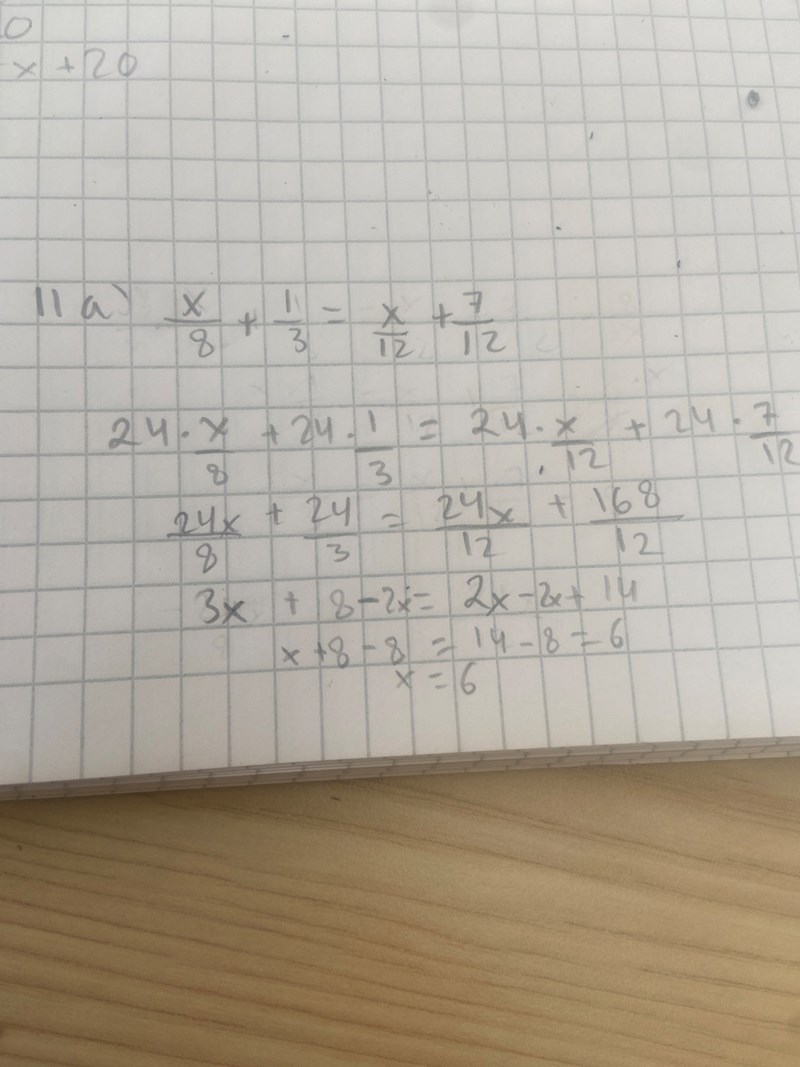 0
x + 20
11 a) x/8 + 1/3 = x/12 + 7/12
24 · x/8 + 24 · 1/3 = 24 · x/12 + 24 · 7/12
24x/8 + 24/3 = 24x/12 + 168/12
3x + 8 - 2x = 2x - 2x + 14
x + 8 - 8 = 14 - 8 = 6
x = 6